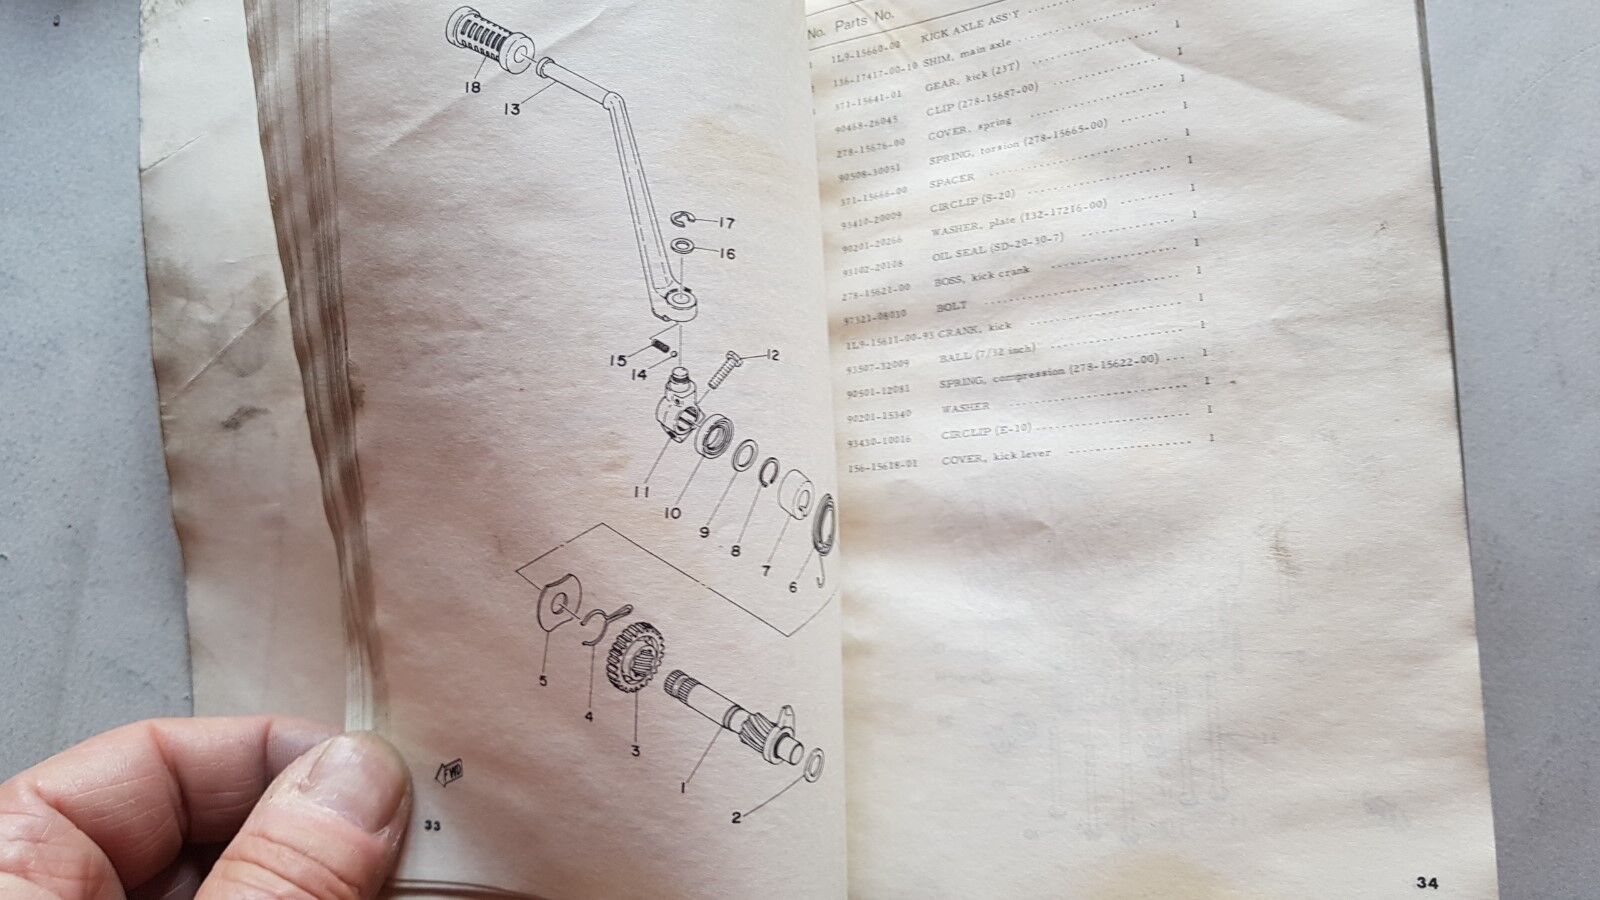 18
13
17
16
15
14
12
11
10
9
8
7
6
5
4
3
1
2
FWD
33
No. Parts No.
1L9-15660-00 KICK AXLE ASS'Y
136-17417-00-10 SHIM, main axle 1
371-15641-01 GEAR, kick (23T) 1
90468-26045 CLIP (278-15687-00) 1
278-15676-00 COVER, spring 1
90508-30051 SPRING, torsion (278-15665-00) 1
371-15666-00 SPACER 1
93410-20009 CIRCLIP (S-20) 1
90201-20266 WASHER, plate (132-17216-00) 1
93102-20108 OIL SEAL (SD-20-30-7) 1
278-15621-00 BOSS, kick crank 1
97321-08030 BOLT 1
1L9-15611-00-93 CRANK, kick 1
93507-32009 BALL (7/32 inch) 1
90501-12081 SPRING, compression (278-15622-00) 1
90201-15340 WASHER 1
93430-10016 CIRCLIP (E-10) 1
156-15618-01 COVER, kick lever 1
34